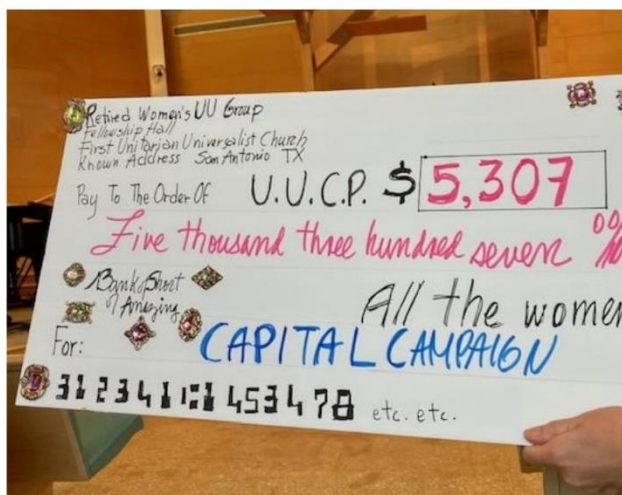 Retired Women's UU Group
Fellowship Hall
First Unitarian Universalist Church
Known Address San Antonio TX
Pay To The Order Of U.U.C.P. $ 5,307
Five thousand three hundred seven 00/
Bank of Short
of Amazing
All the women
For: CAPITAL CAMPAIGN
312341 453478 etc. etc.